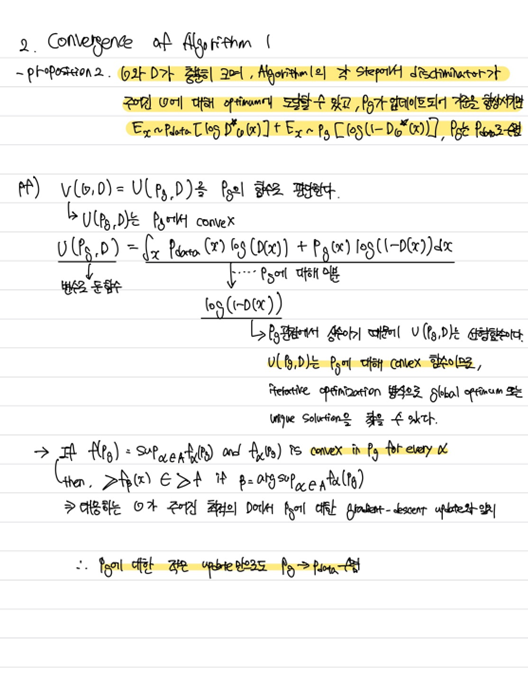 2. Convergence of Algorithm 1
- proposition 2. G와 D가 충분히 크며, Algorithm 1의 각 step에서 discriminator가
주어진 G에 대해 optimum에 도달할 수 있고, Pg가 업데이트되어 기준을 향상시키면
Ex~Pdata[log D*G(x)] + Ex~Pg[log(1-DG*(x))], Pg는 Pdata로 수렴
pf) V(G,D) = U(Pg,D)을 Pg의 함수로 판단한다.
↳ U(Pg,D)는 Pg에서 convex
U(Pg,D) = ∫x Pdata(x) log(D(x)) + Pg(x) log(1-D(x))dx
변수로 둔 함수
..... Pg에 대해 미분
log(1-D(x))
↳ Pg관점에서 상수이기 때문에 U(Pg,D)는 선형함수이다.
U(Pg,D)는 Pg에 대해 convex 함수이므로,
iterative optimization 방식으로 global optimum 또는
unique solution을 찾을 수 있다.
→ If f(Pg) = supα∈A fα(Pg) and fα(Pg) is convex in Pg for every α
then, ≥fβ(x) ∈ ≥f if β = arg supα∈A fα(Pg)
⇒ 대응하는 G가 주어진 최적의 D에서 Pg에 대한 gradient-descent update와 일치
∴ Pg에 대한 작은 update만으로도 Pg → Pdata 수렴